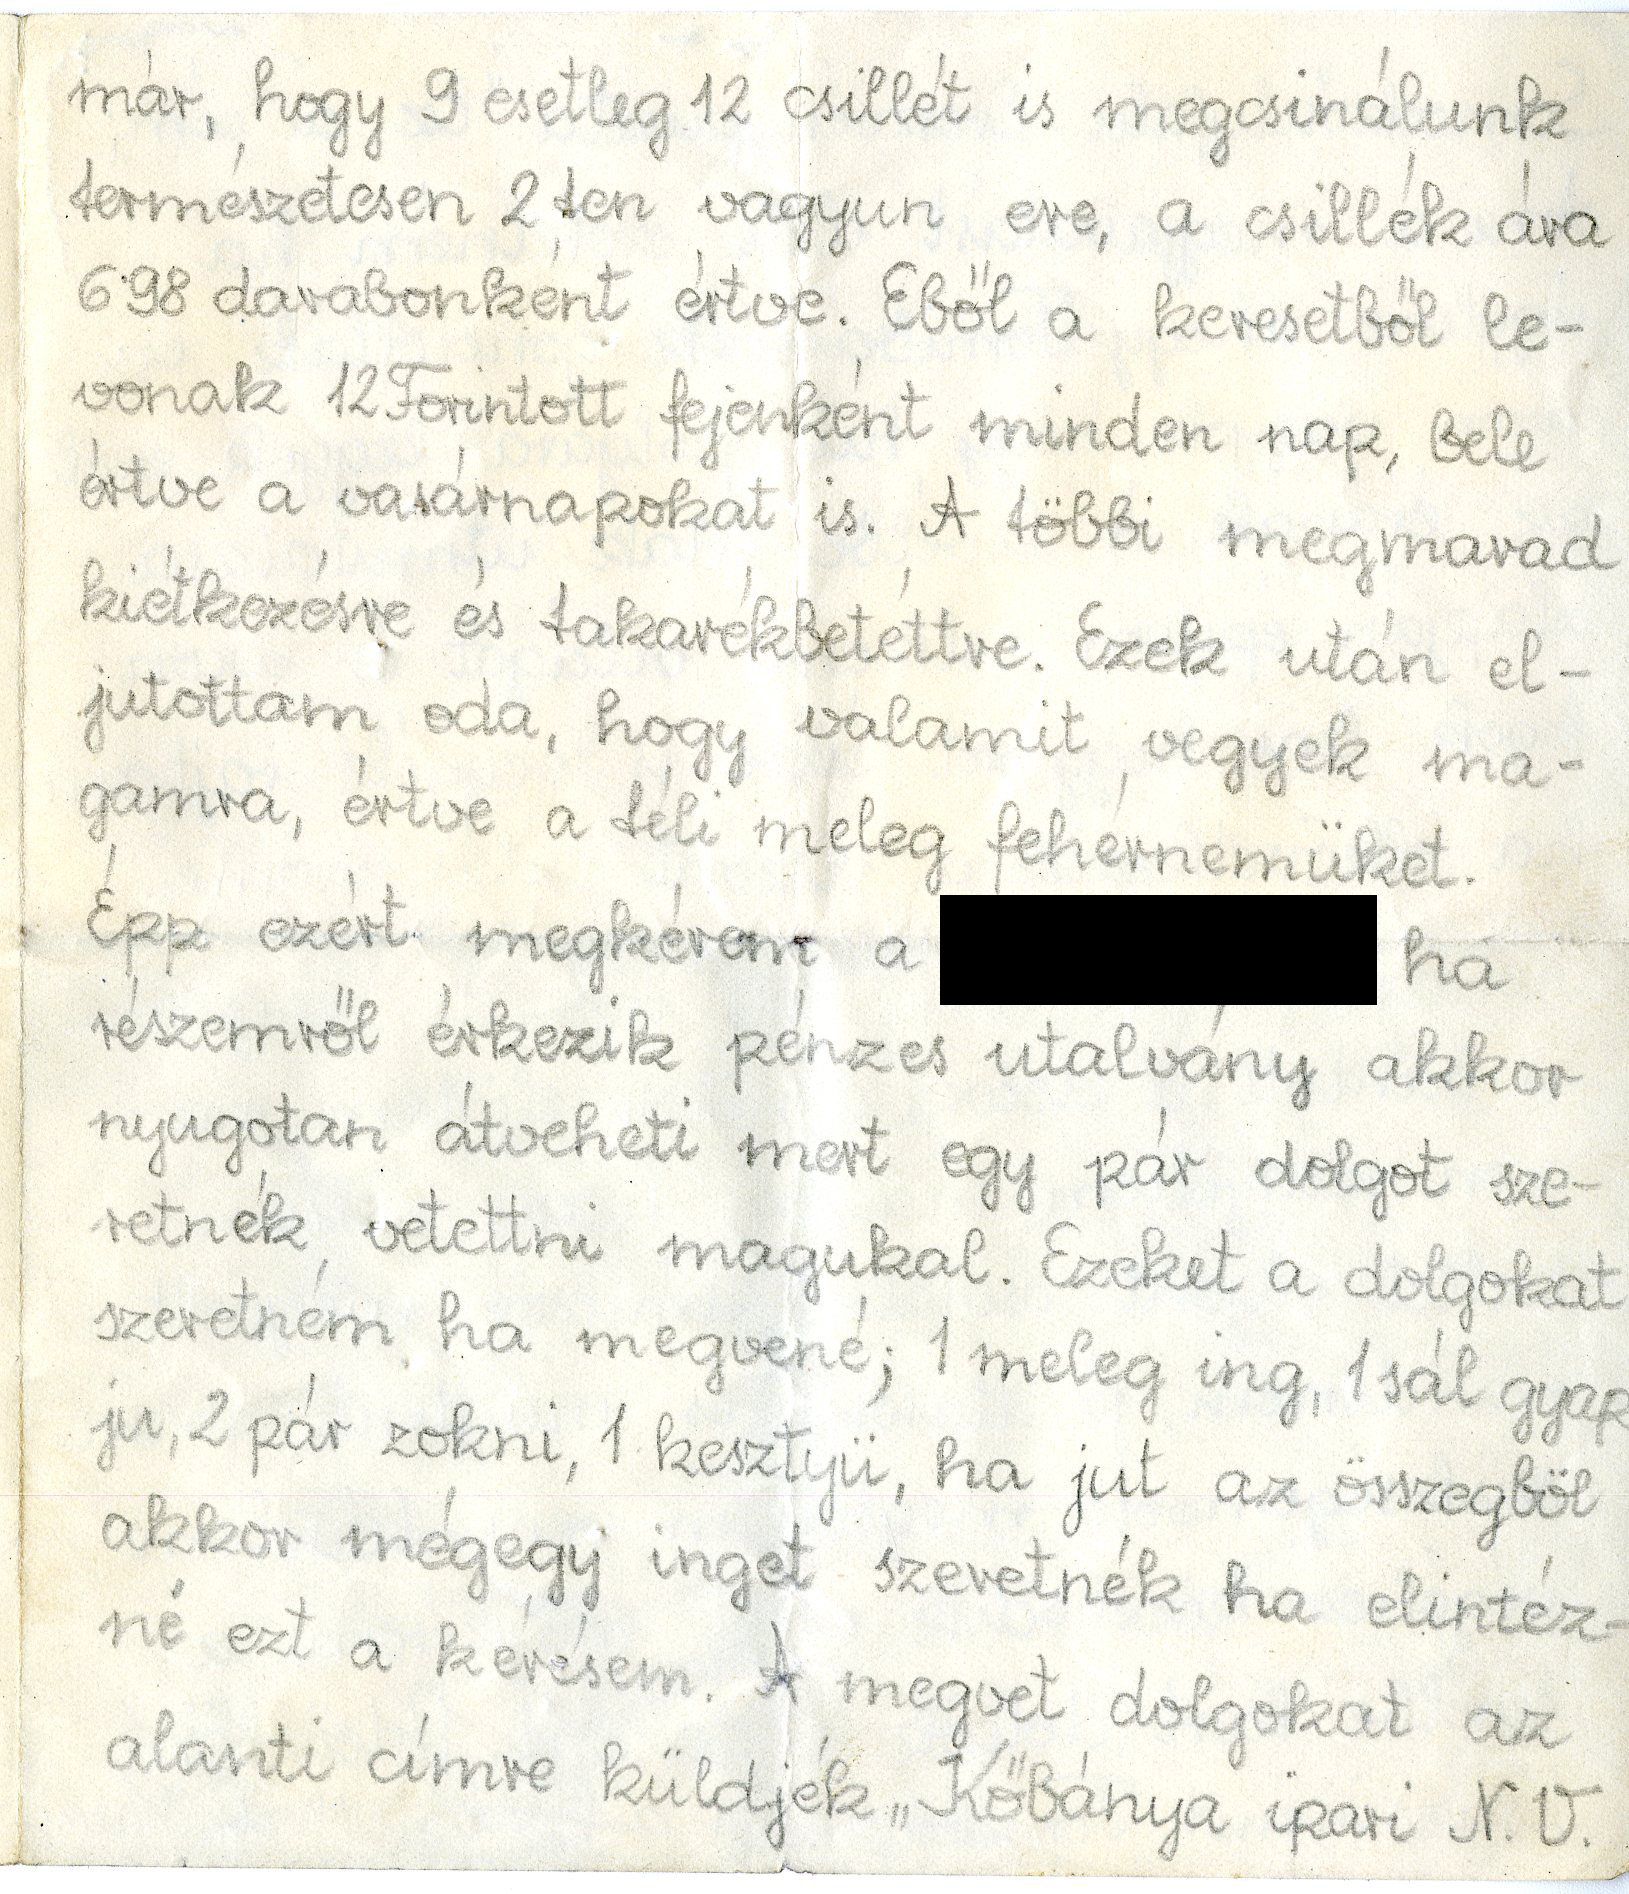 már, hogy 9 esetleg 12 csillét is megcsinálunk
természetesen 2 ten vagyun ere, a csillék ára
6'98 darabonként értve. Eből a keresetből le-
vonak 12 Forintott fejenként minden nap, bele
értve a vasárnapokat is. A többi megmarad
kiétkezésre és takarékbetéttre. Ezek után el-
jutottam oda, hogy valamit vegyek ma-
gamra, értve a téli meleg fehérnemüket.
Épp ezért megkérem a ha
részemről érkezik pénzes utalvány akkor
nyugotan átveheti mert egy pár dolgot sze-
retnék vetettni magukal. Ezeket a dolgokat
szeretném ha megvené; 1 meleg ing, 1 sál gyap
ju, 2 pár zokni, 1 kesztyü, ha jut az összegböl
akkor mégegy inget szeretnék ha elintéz-
né ezt a kérésem. A megvet dolgokat az
alanti címre küldjék „Kőbánya ipari N. V.